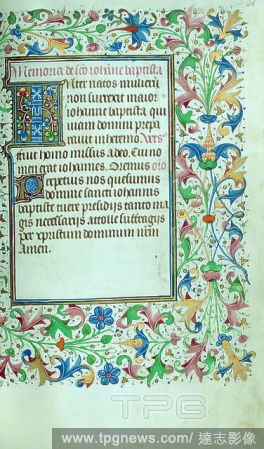 Memoria de sco iohanne baptista
Inter natos mulierũ
non surrexit maior
iohanne baptista qui
uiam domini prepa
rauit in heremo Vers
Fuit homo missus a deo. Cui no
men erat iohannes. Oremus oro
Perpetuis nos quesumus
domine sancti iohannis
baptiste tuere presidijs tanto ma
gis necessarijs attolle suffragijs
per xpristum dominum nrm
Amen.
TPG
www.tpgnews.com/ 達志影像